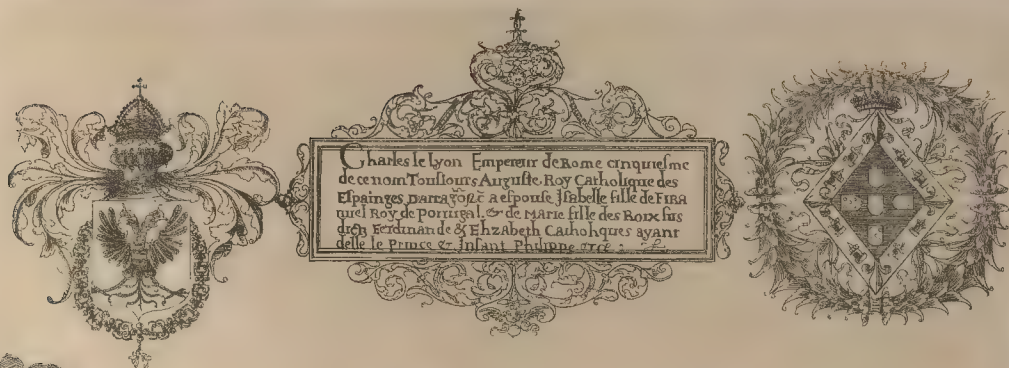 Charles le Lyon Empereur de Rome cinquiesme
de ce nom Tousiours Auguste, Roy Catholique des
Espainges, a espouse Isabelle fille de Ema
nuel Roy de Portugal, & de Marie fille des Roix sus
Ferdinande & Elizabeth Catholiques ayant
delle le Prince & Infant Philippe